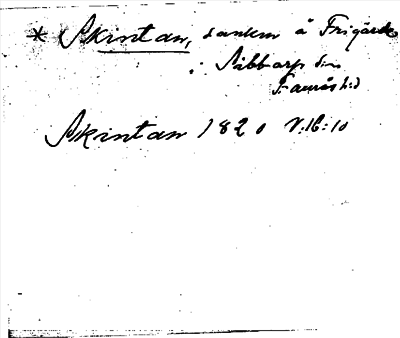 * Skintan, sankm å Frigärde
i Sibbarp sn
Faurås hd
Skintan 1820 V:16:10